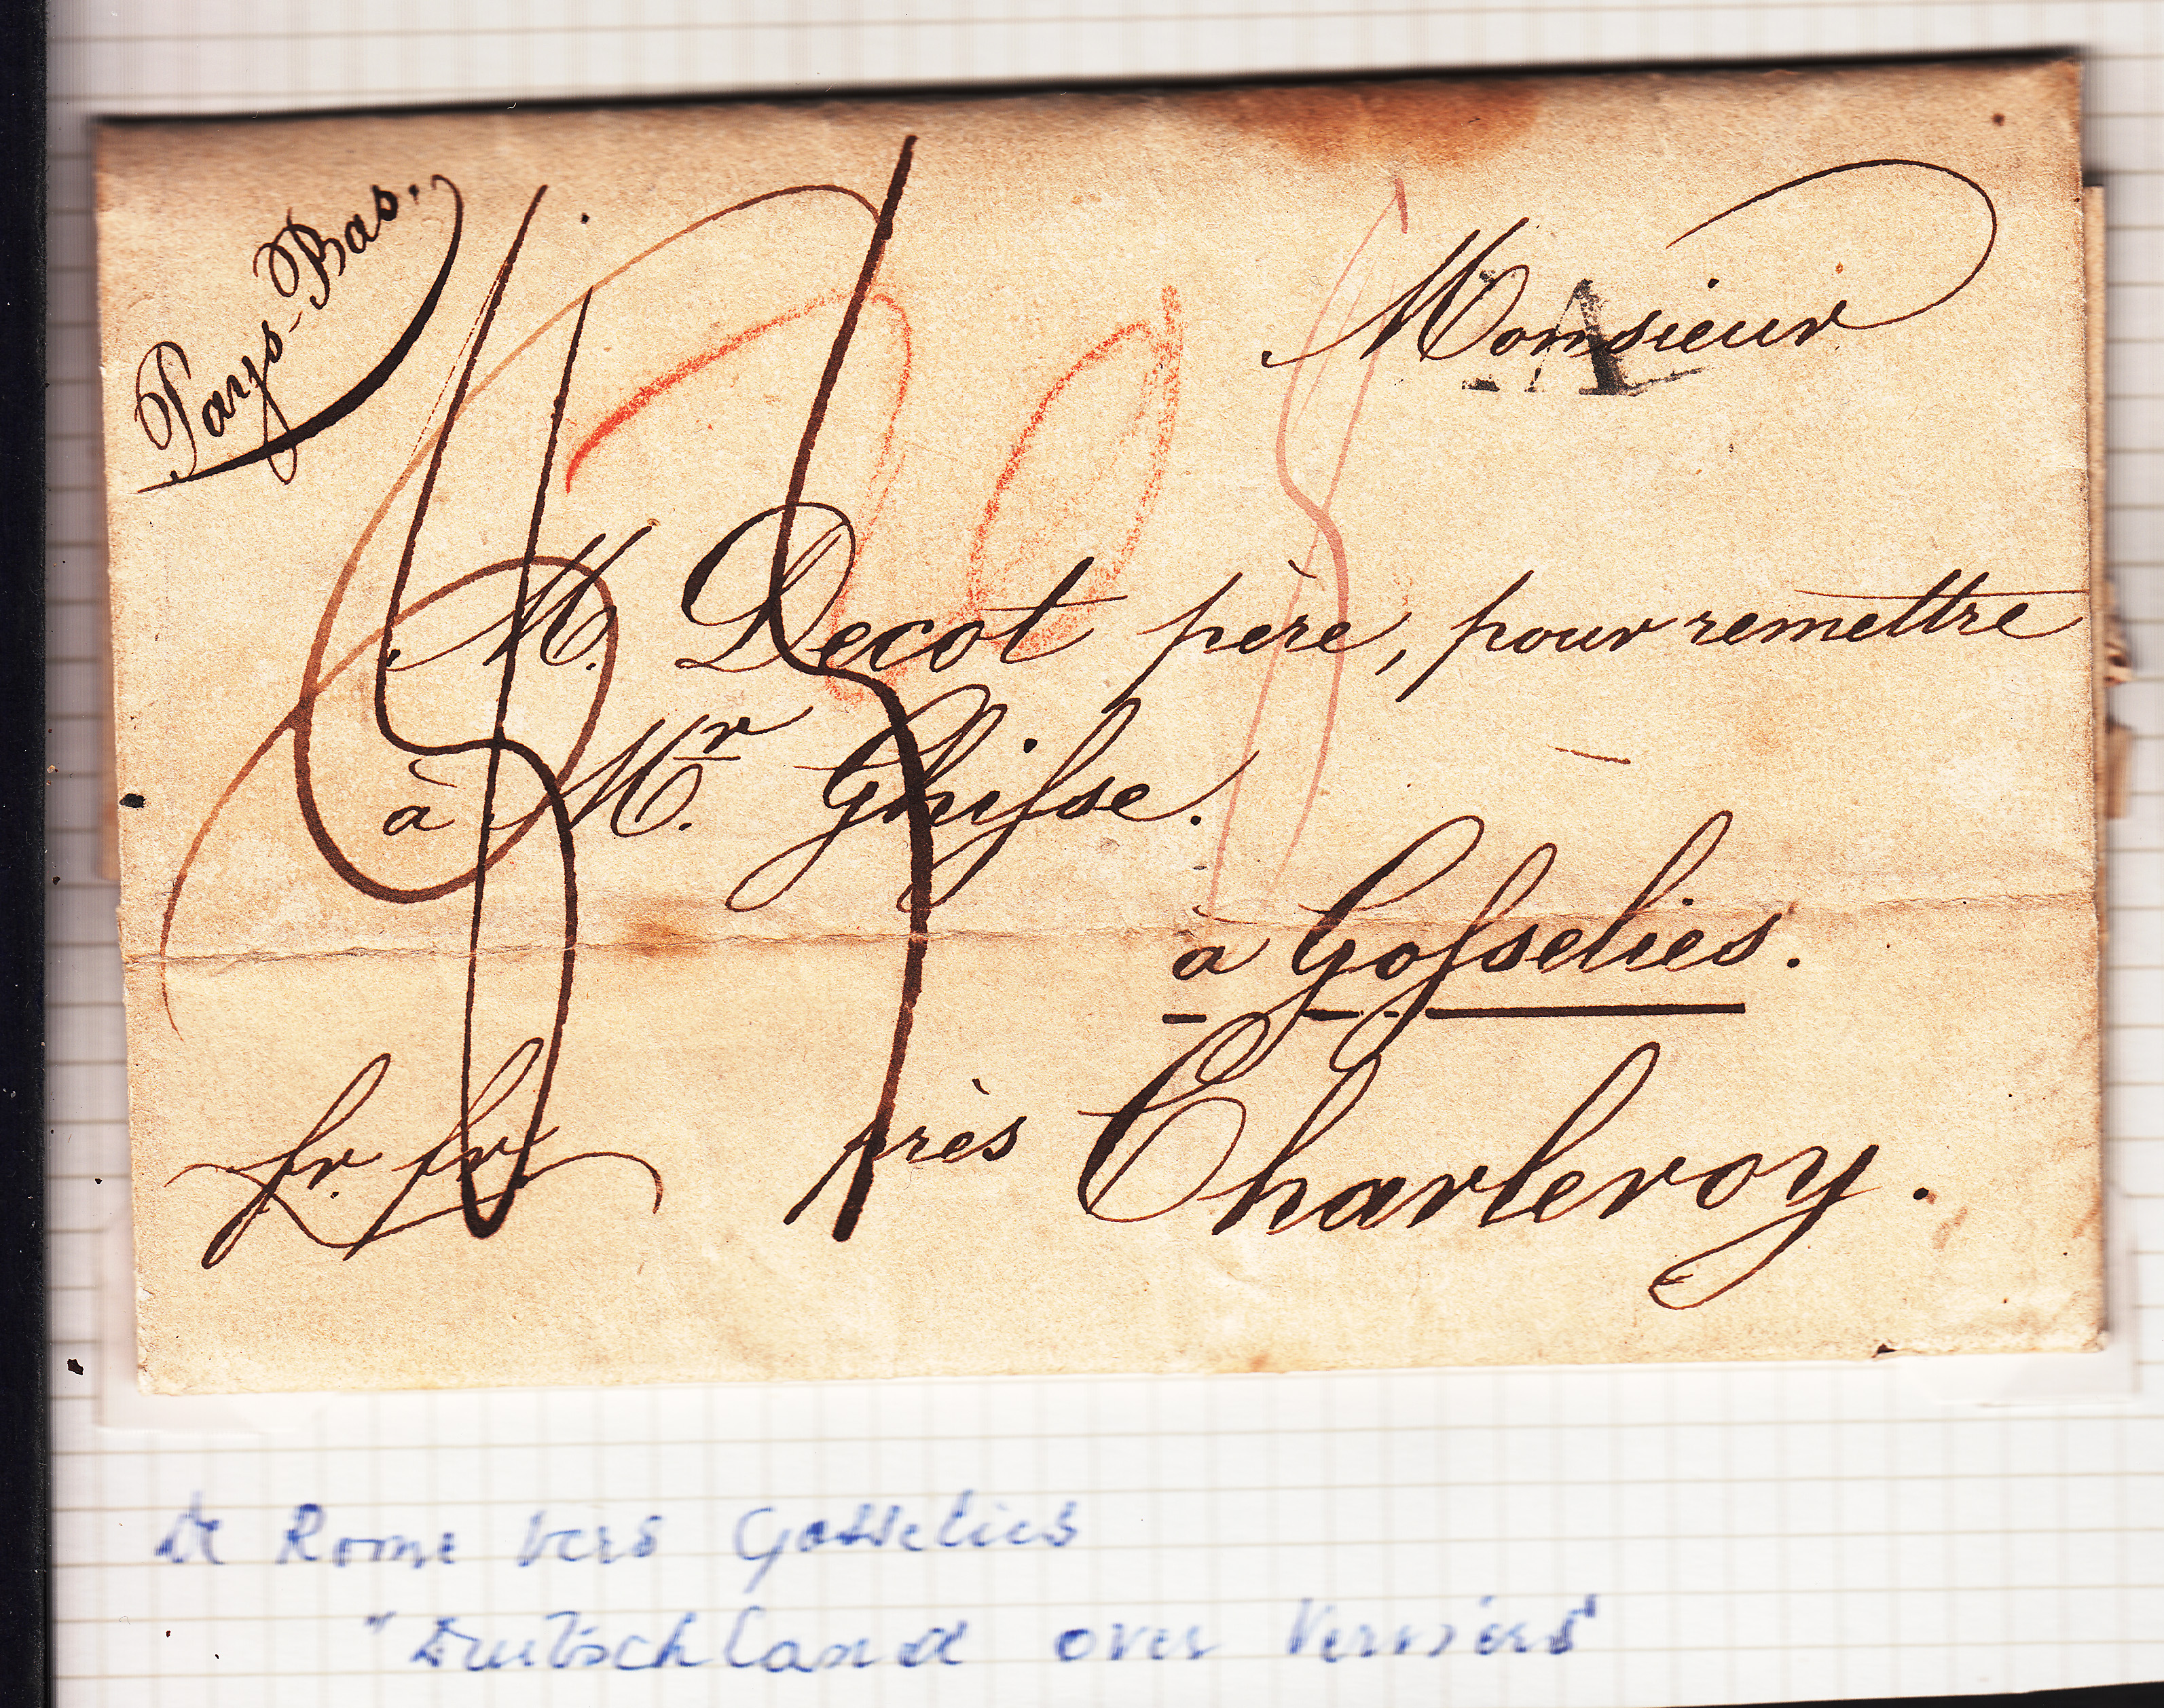 Pays-Bas.
Monsieur
A
M. Decot père, pour remettre
à Mr. Ghisse.
à Gosselies.
fr. fr.
près Charleroy.
De Rome vers Gosselies
"Deutschland over Verviers"